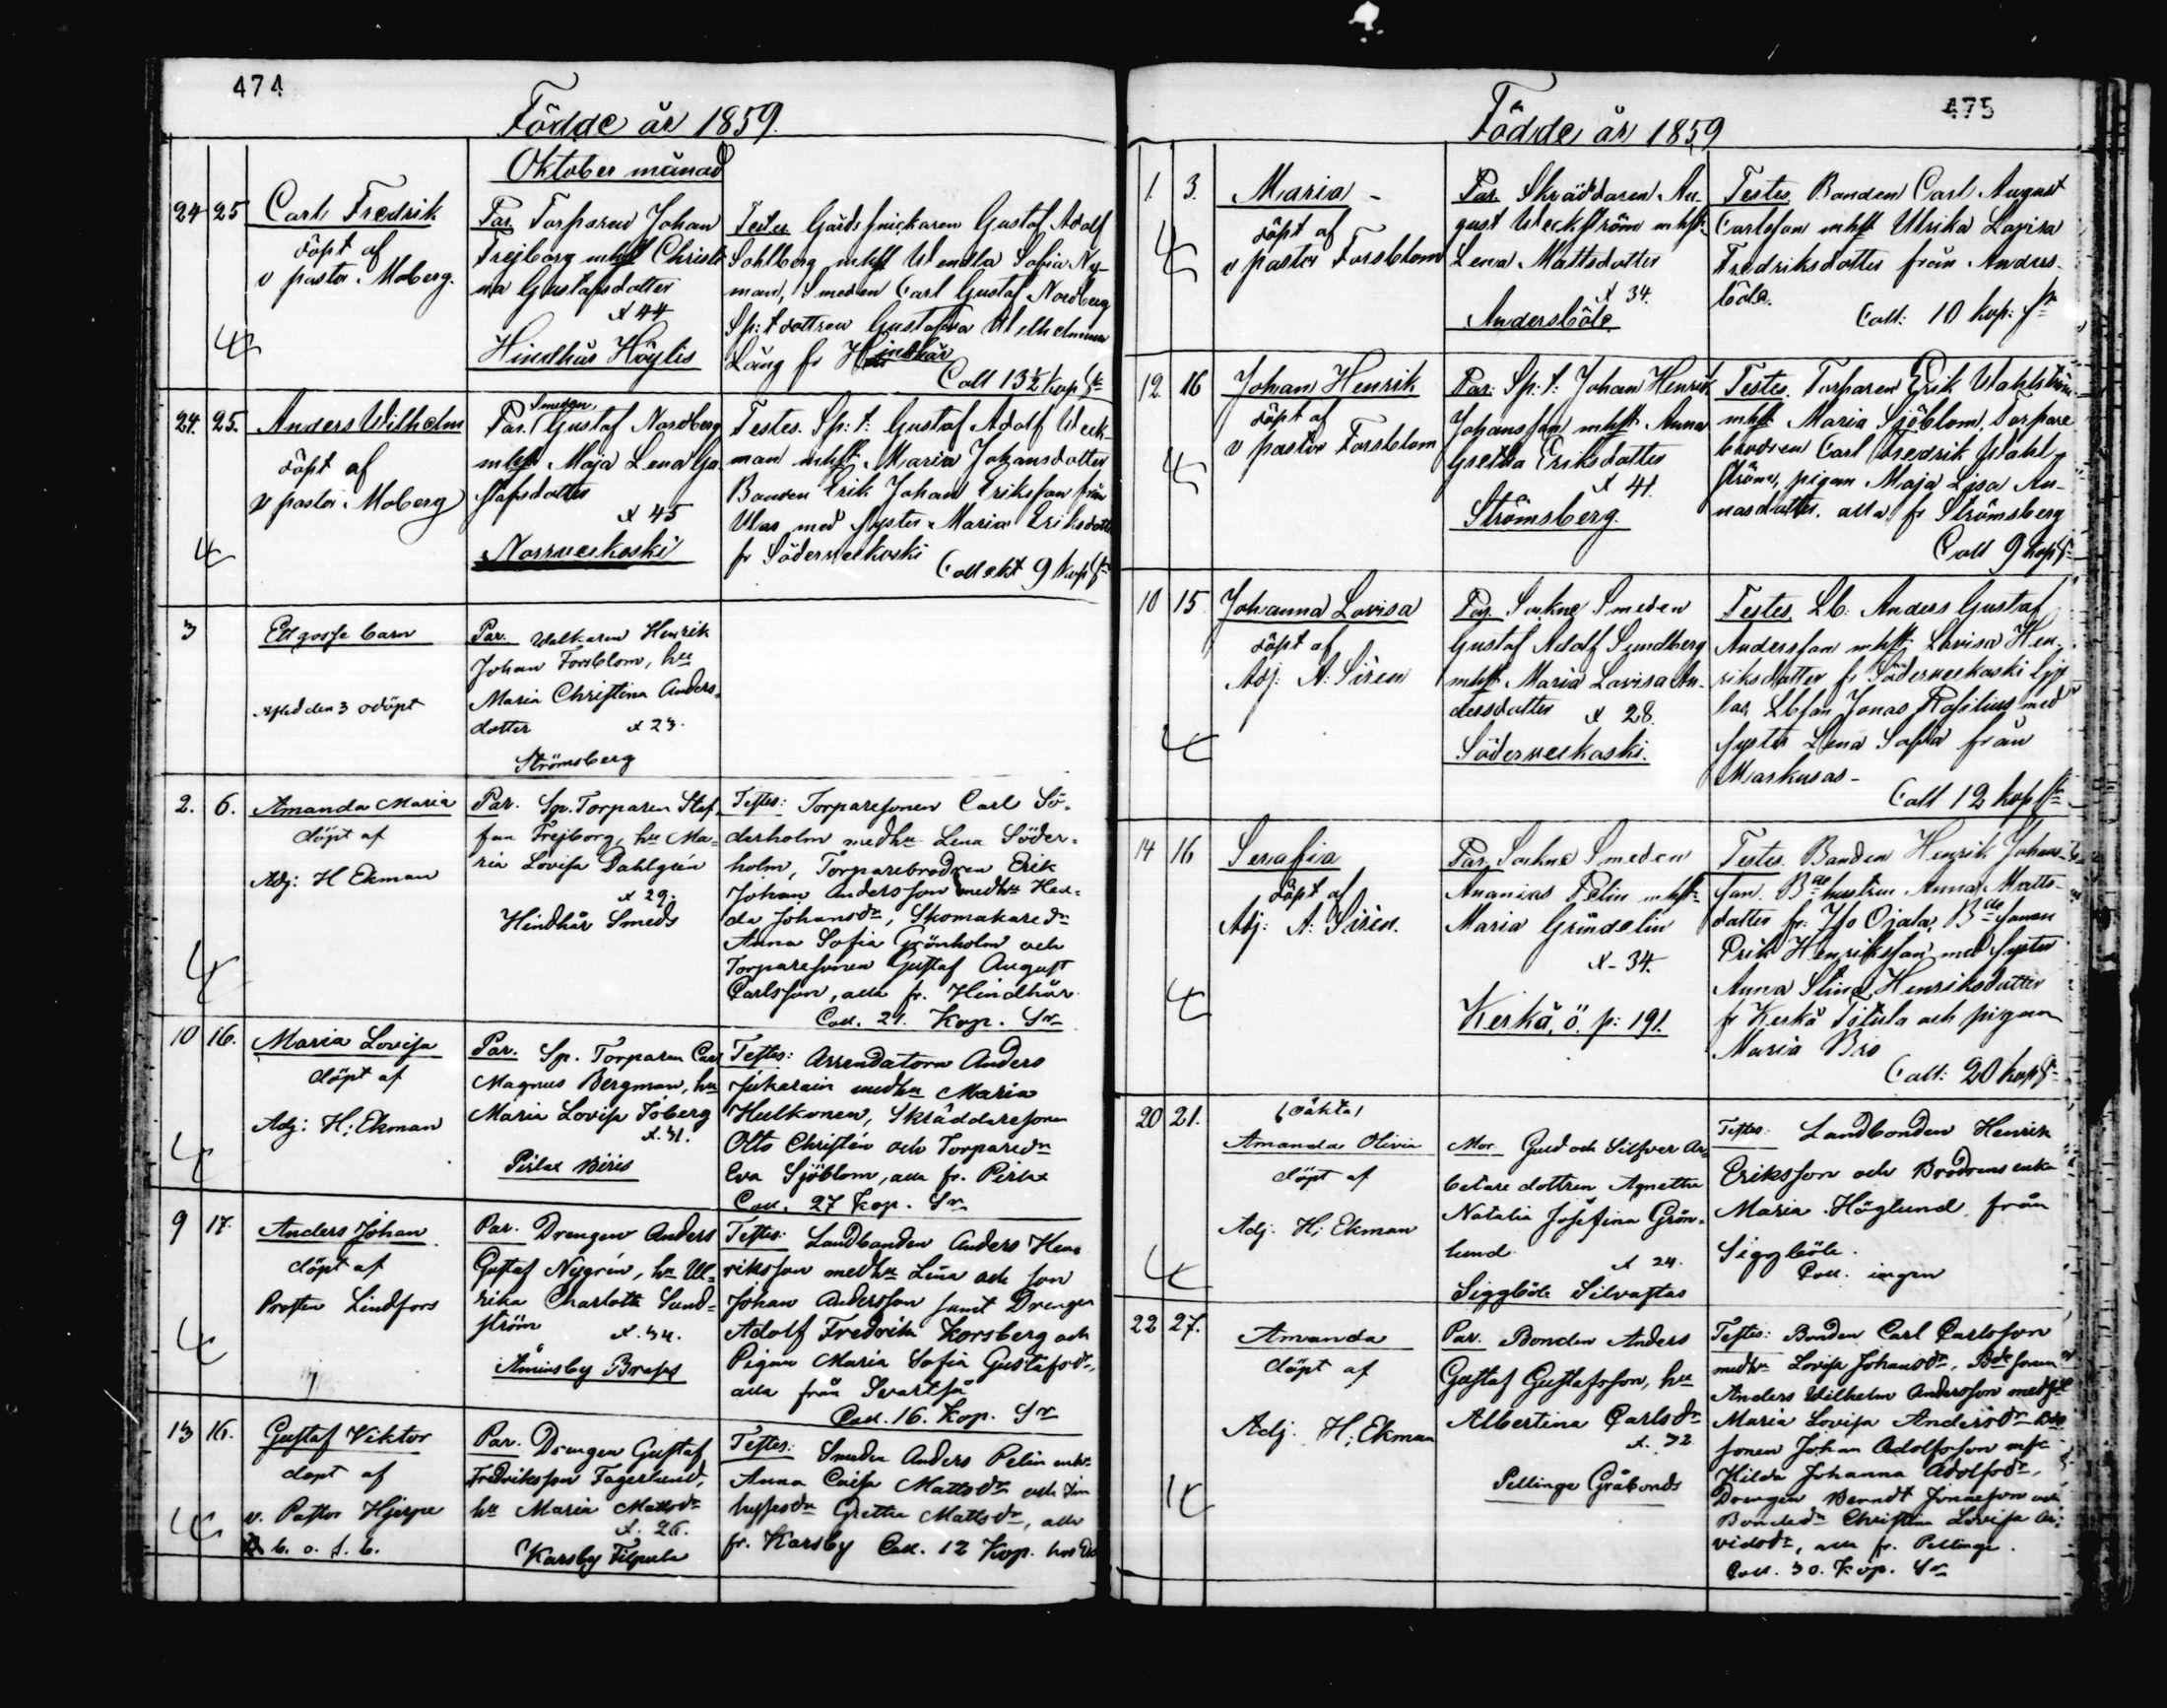 474
Födde år 1859.
Oktober månad
24 25 Carl Fredrik
döpt af
v pastor Moberg.
Par. Torparen Johan
Frejborg mhst Christi
na Gustafsdotter
x 44
Hindhår Höylis
Testes Gårdssnickaren Gustaf Adolf
Sohlberg mhst Wendla Sofia Ny-
man, Smeden Carl Gustaf Nordberg
Sp: t dottren Gustafva Wilhelmina
Lång fr Hindhår
Coll 13½ kop Sr
24. 25. Anders Wilhelm
döpt af
v pastor Moberg
Par. Smeden Gustaf Nordberg
mhst Maja Lena Gu
stafsdotter
x 45
Norrveckoski
Testes. Sp: t: Gustaf Adolf Weck-
man mhst Maria Johansdotter
Bonden Erik Johan Eriksson från
med syster Maria Eriksdotter
fr Söderveckoski
Collekt 9 kop Sr
3 Ett gosse barn
den 3 odöpt
Par. Walkaren Henrik
Johan Forsblom, hu
Maria Christina Anders-
dotter x 23.
Strömsberg
2. 6. Amanda Maria
döpt af
Adj: H Ekman
Par. Sp. Torparen Stef-
fan Frejborg, hu Ma-
ria Lovisa Dahlgrén
x 29.
Hindhår Smeds
Testes: Torparesonen Carl Sö-
derholm medhu Lena Söder-
holm, Torparebrodren Erik
Johan Andersson medhu Hed-
da Johansdr, Skomakaredr
Anna Sofia Grönholm och
Torparesonen Gustaf August
Carlsson, alla fr. Hindhår
Coll. 21. Kop. Sr
10 16. Maria Lovisa
döpt af
Adj: H: Ekman
Par. Sp. Torparen Carl
Magnus Bergman, hu
Maria Lovisa Töberg
x. 31.
Pirlax Biris
Testes: Arrendatorn Anders
medhu Maria
Hulkonen, Skräddaresonen
Otto Christén och Torparedr
Eva Sjöblom, alla fr. Pirlax
Coll. 27 Kop. Sr
9 17. Anders Johan
döpt af
Prosten Lindfors
Par. Drengen Anders
Gustaf Nygrén, hu Ul-
rika Charlotta Sund-
ström x. 34.
Åminsby Brasas
Testes: Landbonden Anders Hen-
riksson medhu Lina och son
Johan Andersson samt Drengen
Adolf Fredrik Korsberg och
Pigan Maria Sofia Gustafsdr,
alla från Svartså
Coll. 16. Kop. Sr
13 16. Gustaf Viktor
döpt af
v. Pastor Hjerpe
b. o. s. b.
Par. Drengen Gustaf
Fredriksson Fagerlund,
hu Maria Mattsdr
x. 26.
Karsby Filpula
Testes: Smeden Anders Pelin mhu
Anna Caisa Mattsdr och In
hysesdr Gretha Mattsdr, alla
fr. Karsby Coll. 12 Kop.
475
Födde år 1859
1. 3. Maria -
döpt af
v pastor Forsblom
Par. Skräddaren Au-
gust Weckström mhst
Lena Mattsdotter
x 34.
Andersböle
Testes. Bonden Carl August
Carlsson mhst Ulrika Lovisa
Fredriksdotter från Anders-
böle.
Coll: 10 kop: Sr
12. 16 Johan Henrik
döpt af
v pastor Forsblom
Par: Sp: t: Johan Henrik
Johansson mhst Anna
Gretha Eriksdotter
x 41.
Strömsberg.
Testes. Torparen Erik Wahlström
mhst Maria Sjöblom, Torpare
brodren Carl Fredrik Wahl-
ström, pigan Maja Lisa An-
nasdotter. alla fr Strömsberg
Coll 9 kop Sr
10 15 Johanna Lovisa
döpt af
Adj: A: Sirén
Par. Sockne Smeden
Gustaf Adolf Sundberg
mhst Maria Lovisa An-
dersdotter x 28.
Söderveckoski.
Testes. Lb. Anders Gustaf
Andersson mhst Lovisa Hen-
riksdotter fr Söderveckoski
Lbson Jonas med
syster Lena Sofia från
Markusas-
Coll 12 kop Sr
14 16 Serafia
döpt af
Adj: A: Sirén.
Par. Sockne Smeden
Ananias Felin mhst
Maria Grundelin
x-34.
Kerkå, ö. p: 191.
Testes. Bonden Henrik Johans-
son. Bde hustrun Anna Matts-
dotter fr: Ojala, Bde sonen
Erik Henriksson med syster
Anna Stina Henriksdotter
fr Kerkå Titula och pigan
Maria Bro
Coll: 20 kop Sr
20 21. (oäkta)
Amanda Olivia
döpt af
Adj. H: Ekman
Mor. Guld och Silfver Ar-
betare dottren Agnetha
Natalia Josefina Grön-
lund
x 24.
Siggböle Silvastas
Testes: Landbonden Henrik
Eriksson och Brodrens enka
Maria Höglund från
Siggböle.
Coll. ingen
22 27. Amanda
döpt af
Adj. H: Ekman
Par. Bonden Anders
Gustaf Gustafsson, hu
Albertina Carlsdr
x. 32
Pellinge Gråbonds
Testes: Bonden Carl Carlsson
medhu Lovisa Johansdr, Bde sonen
Anders Wilhelm Andersson
Maria Lovisa Andersdr Bde
sonen Johan Adolfsson
Hilda Johanna Adolfsdr,
Drengen Berndt Jonasson och
Bondedr Christina Lovisa Ar-
vidsdr, alla fr. Pellinge.
Coll. 30. Kop. Sr